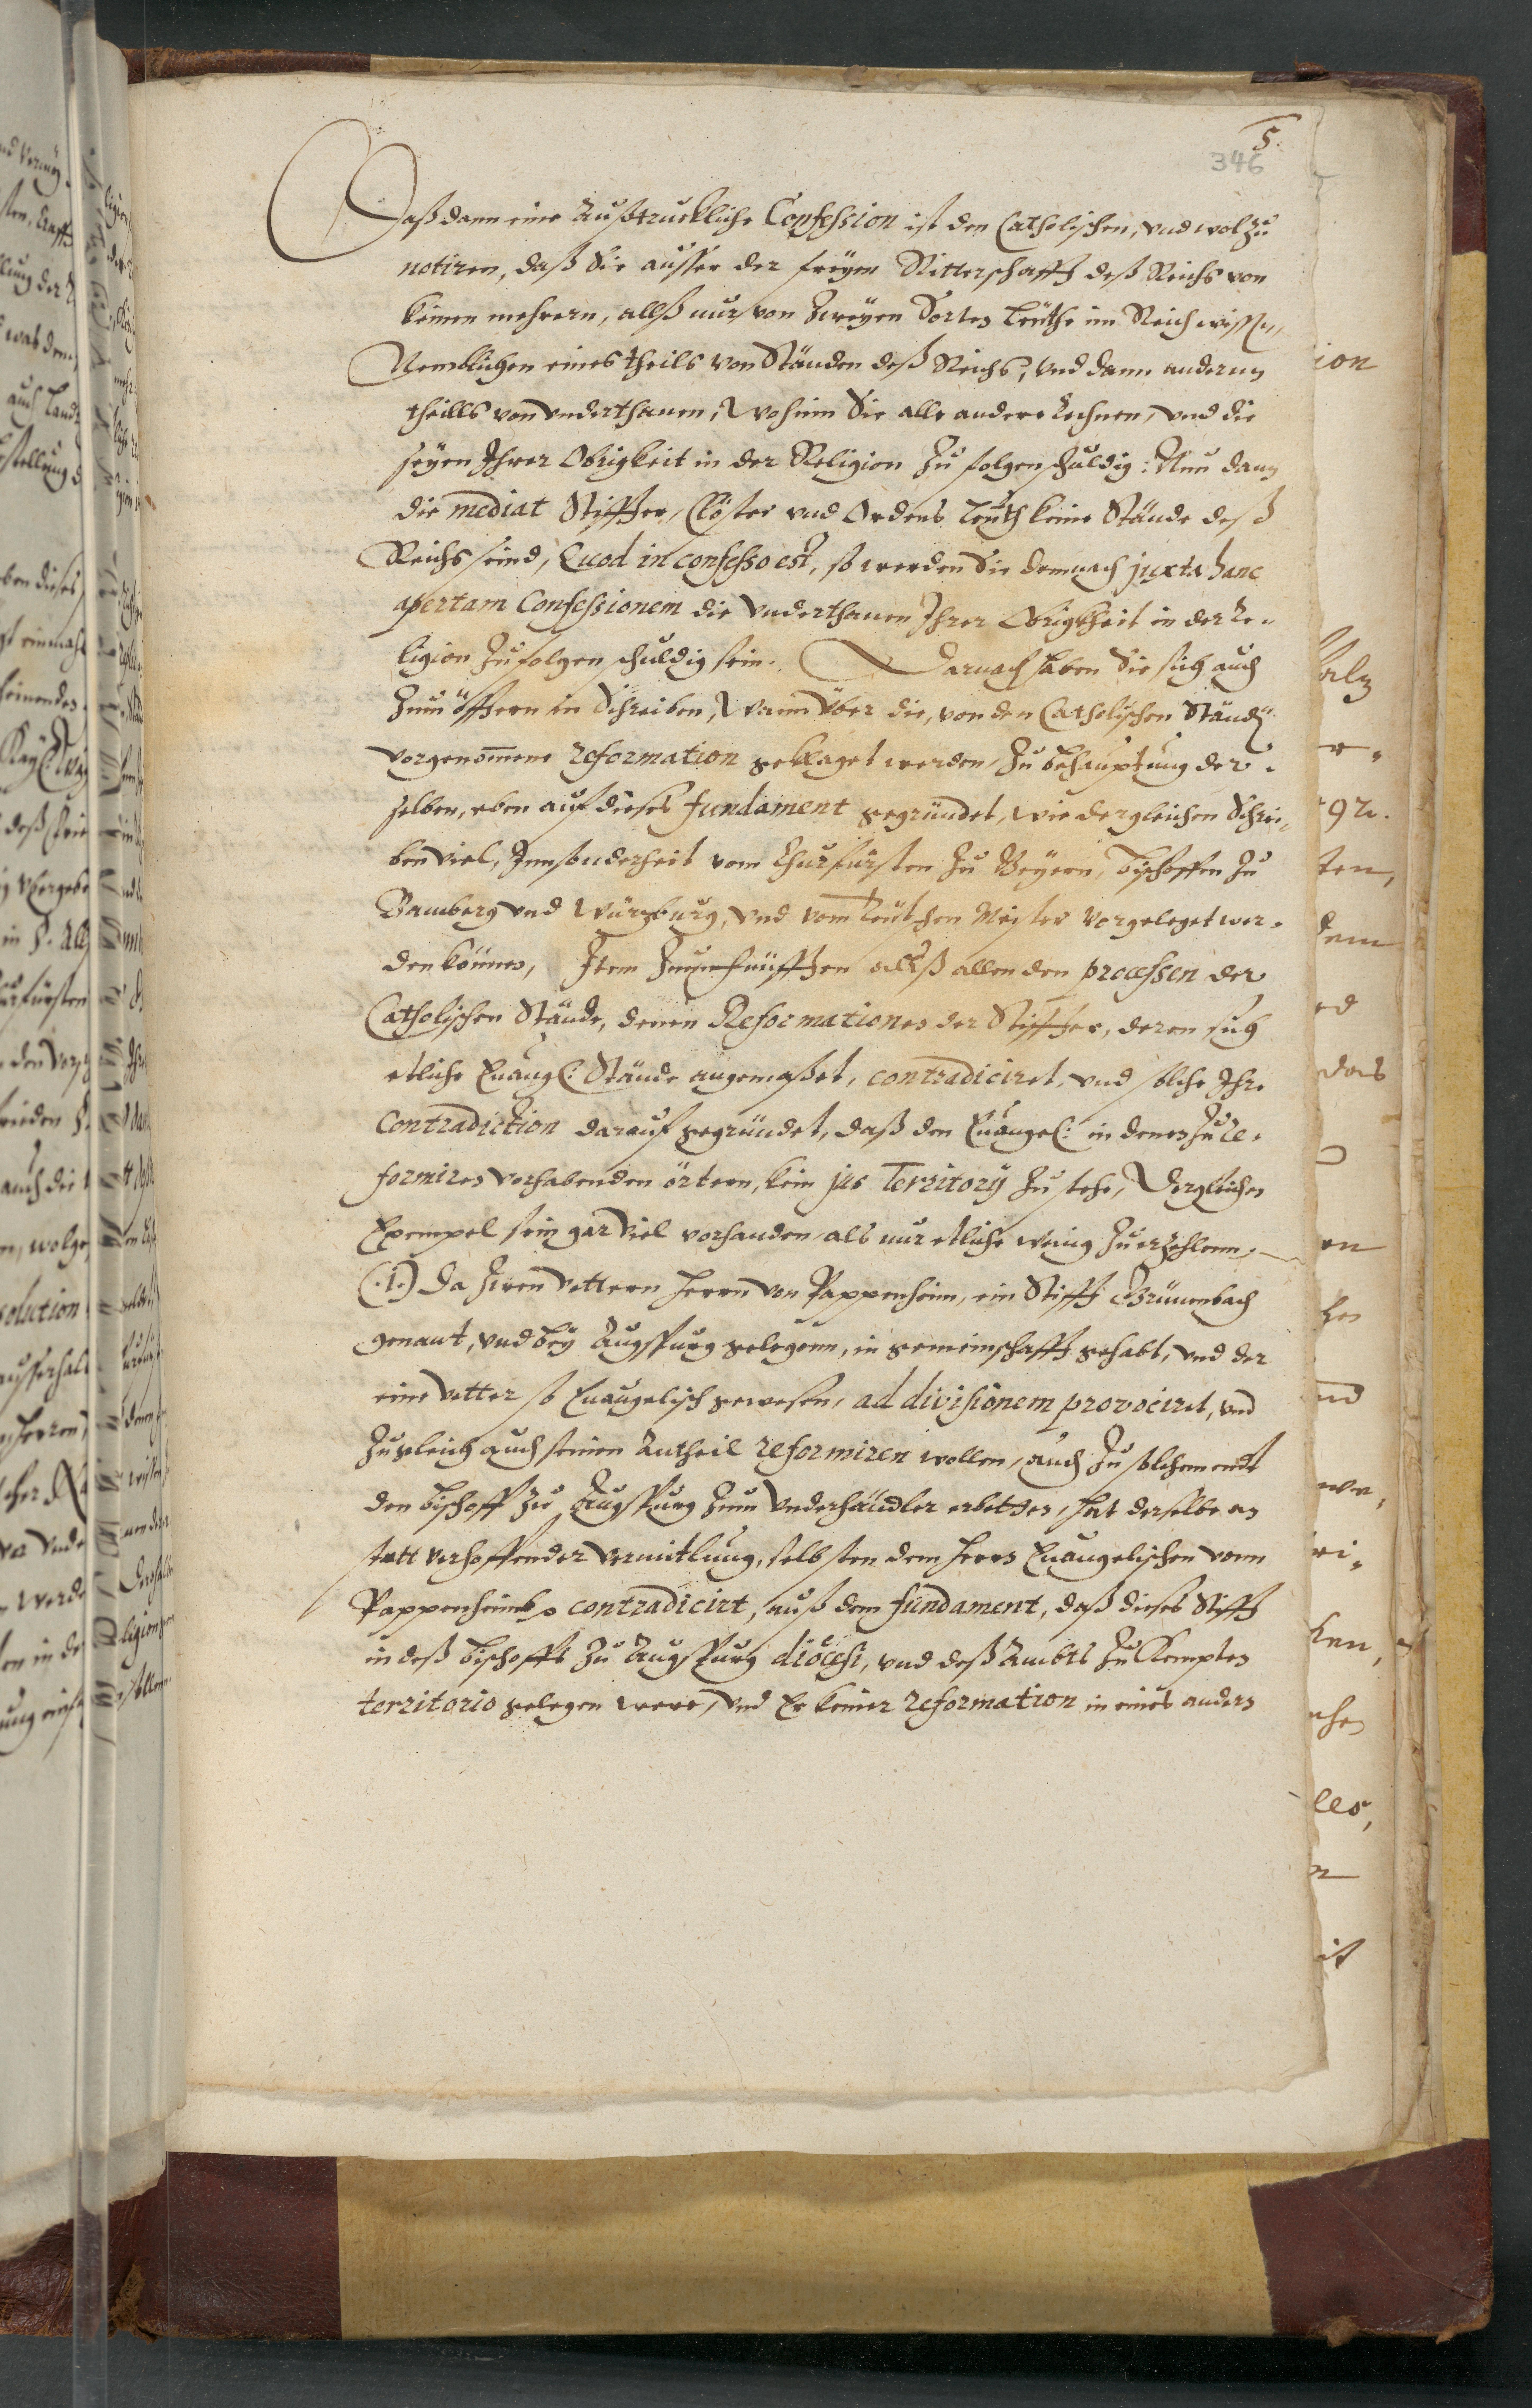 5.
346
Daß dann eine Außtruckliche Confession ist den Catholischen, vnd wol zu
notiren, daß Sie ausser der freyen Ritterschafft deß Reichs von
keinen mehrern, allß nur von zweyen Sorten Leüthe im Reich wissen,
Nemblichen eines theils von Ständen deß Reichs, vnd dann anderns
theills von vnderthanen, Wohinn Sie alle andere rechnen, vnd die
seyen Ihrer Obrigkeit in der Religion zu folgen schuldig: Nun dann
die mediat Stiffter, Clöster vnd Ordens Leuth keine Stände deß
Reichs seind, Quod in confesso est, so werden Sie demnach juxta hanc
apertam Confessionem die vnderthanen Ihrer Obrigkheit in der Re-
ligion zu folgen schuldig sein. Darnach haben Sie sich auch
zum öfftern in Schreiben, Wann vber die, von den Catholischen Ständen
vorgenom̄ene reformation geklaget worden, zu behauptung der-
selben, eben auf dieses fundament gegründet, wie dergleichen Schrei-
ben viel, Innsonderheit vom Churfürsten zu Beyern, Bischoffen zu
Bamberg vnd Würzburg, vnd vom Teütschen Meister vorgeleget wer-
den können, Item Zum fünfften allß allen den processen der
Catholischen Stände, denen Reformationes der Stiffter, deren sich
etliche Euangl: Stände angemaßet, contradiciret, vnd solche Ihre
Contradiction darauf gegründet, daß den Euangel: in denen zu re-
formiren vorhabenden örtern, kein jus Territorÿ zu stehe, Dergleichen
Exempel sein gar viel vorhanden, als nur etliche wenig zu erzehlenn,
(.1.) Da zwen Vettern Herrn von Pappenheim, ein Stifft Grünenbach
genant, vnd bey Augspurg gelegenn, in gemeinschafft gehabt, vnd der
eine Vetter so Euangelisch gewesen, ad divisionem provociret, vnd
zugleich auch seinen Antheil reformiren wollen, auch zu solchem endt
den Bischoff zu Augspurg zum Vnderhändler erbetten, hat derselbe an
statt verhoffender vermitlung, selbsten dem Herrn Euangelischen vonn
Pappenheimb contradicirt, auß dem fundament, daß dieses Stifft
in deß Bischoffs zu Augspurg diöcesi, vnd deß Ambts zu Kempten
territorio gelegen were, vnd Er keiner reformation in eines andern